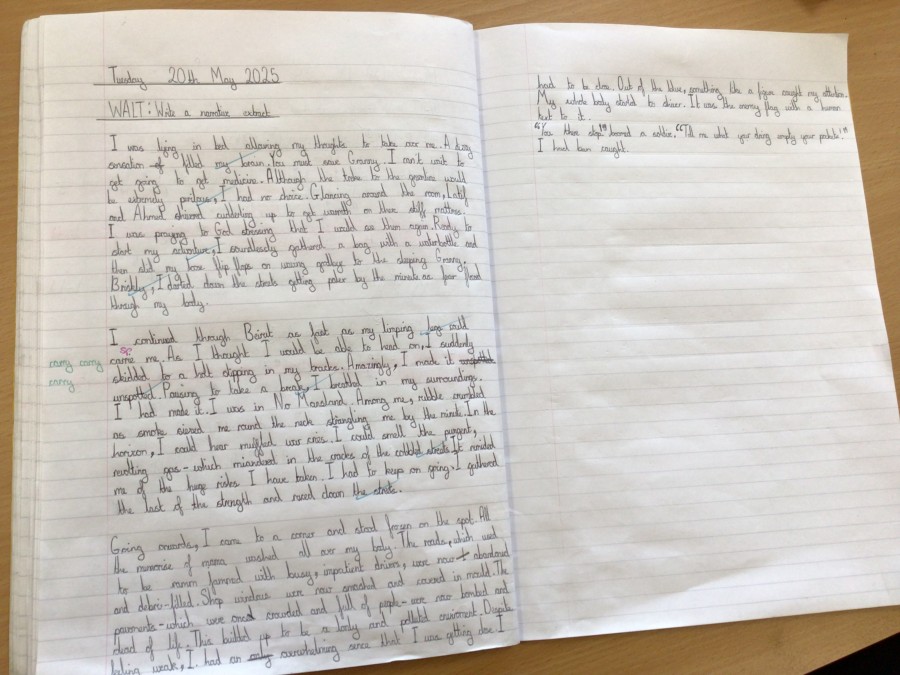 Tuesday 20th May 2025
WALT: Write a narrative extract
I was lying in bed allowing my thoughts to take over me. A
sensation filled my brain. You must save Granny. I must
get going to get medicine. Although the to the would
be extremely perilous, I had no choice. Glancing around the room, Latif
and Ahmed cuddling up to get warmth on their stiff
I was praying to God stressing that I would see them again. Ready to
start my adventure, I soundlessly gathered a bag with a waterbottle and
then slid my flip flops on waving goodbye to the sleeping Granny.
Briskly, I darted down the streets getting by the minute as fear
through my body.
I continued through Beirut as fast as my limping legs could
carry carry
came me. As I thought I would be able to head on, I suddenly
carry
skidded to a halt stopping in my tracks. Amazingly, I made it
unspotted. Pausing to take a break, I breathed in my surroundings.
I had made it. I was in No Mansland. Among me, rubble crumbled
as smoke me round the neck strangling me by the minute. In the
horizon, I could hear muffled war cries. I could smell the pungent,
revolting gas - which in the cracks of the streets. It
me of the huge risks I have taken. I had to keep on going. I gathered
the last of the strength and raced down the
Going onwards, I came to a corner and stood frozen on the spot. All
the of mama washed all over my body. The roads, which used
to be jammed with busy, impatient drivers, were now
and debris-filled. Shop windows were now smashed and covered in The
pavements - which were crowded and full of people - were now bombed and
dead of life. This up to be a and polluted
feeling weak, I had an overwhelming sense that I was getting close I
had to be close. Out of the blue, something like a figure caught my
My whole body started to It was the enemy flag with a human
to it.
"You there stop!" a soldier, "Tell me what your doing empty your
I had been caught.